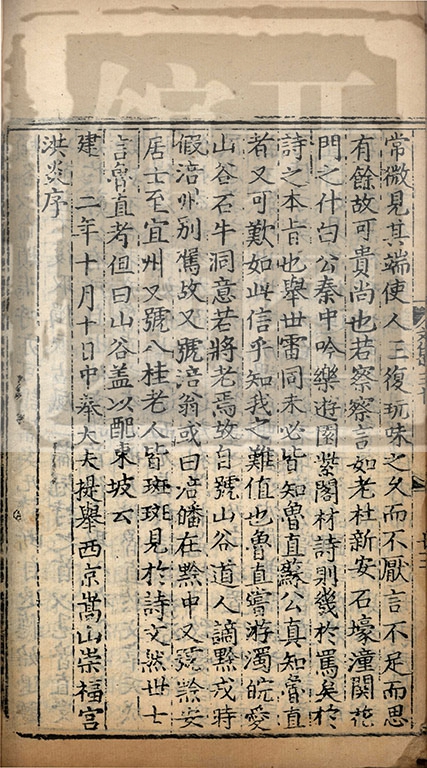 常微見其端使人三復玩味之久而不厭言不足而思
有餘故可貴尚也若察察言如老杜新安石壕潼關花
門之什白公秦中吟樂遊園紫閣村詩則幾於罵矣於
詩之本旨也舉世雷同未必皆知魯直蘇公真知魯直
者又可歎如此信乎知我之難值也魯直嘗游灊皖愛
山谷石牛洞意若將老焉故自號山谷道人謫黔戎時
假涪州別駕故又號涪翁或曰涪皤在黔中又號黔安
居士至宜州又號八桂老人皆班班見於詩文然世士
言魯直者但曰山谷盖以配東坡云
建 二年十月十日中奉大夫提舉西京嵩山崇福宮
洪炎序